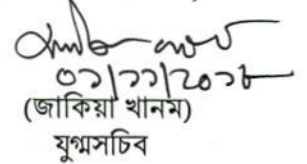 ০১/১১/২০১৮
(জাকিয়া খানম)
যুগ্মসচিব